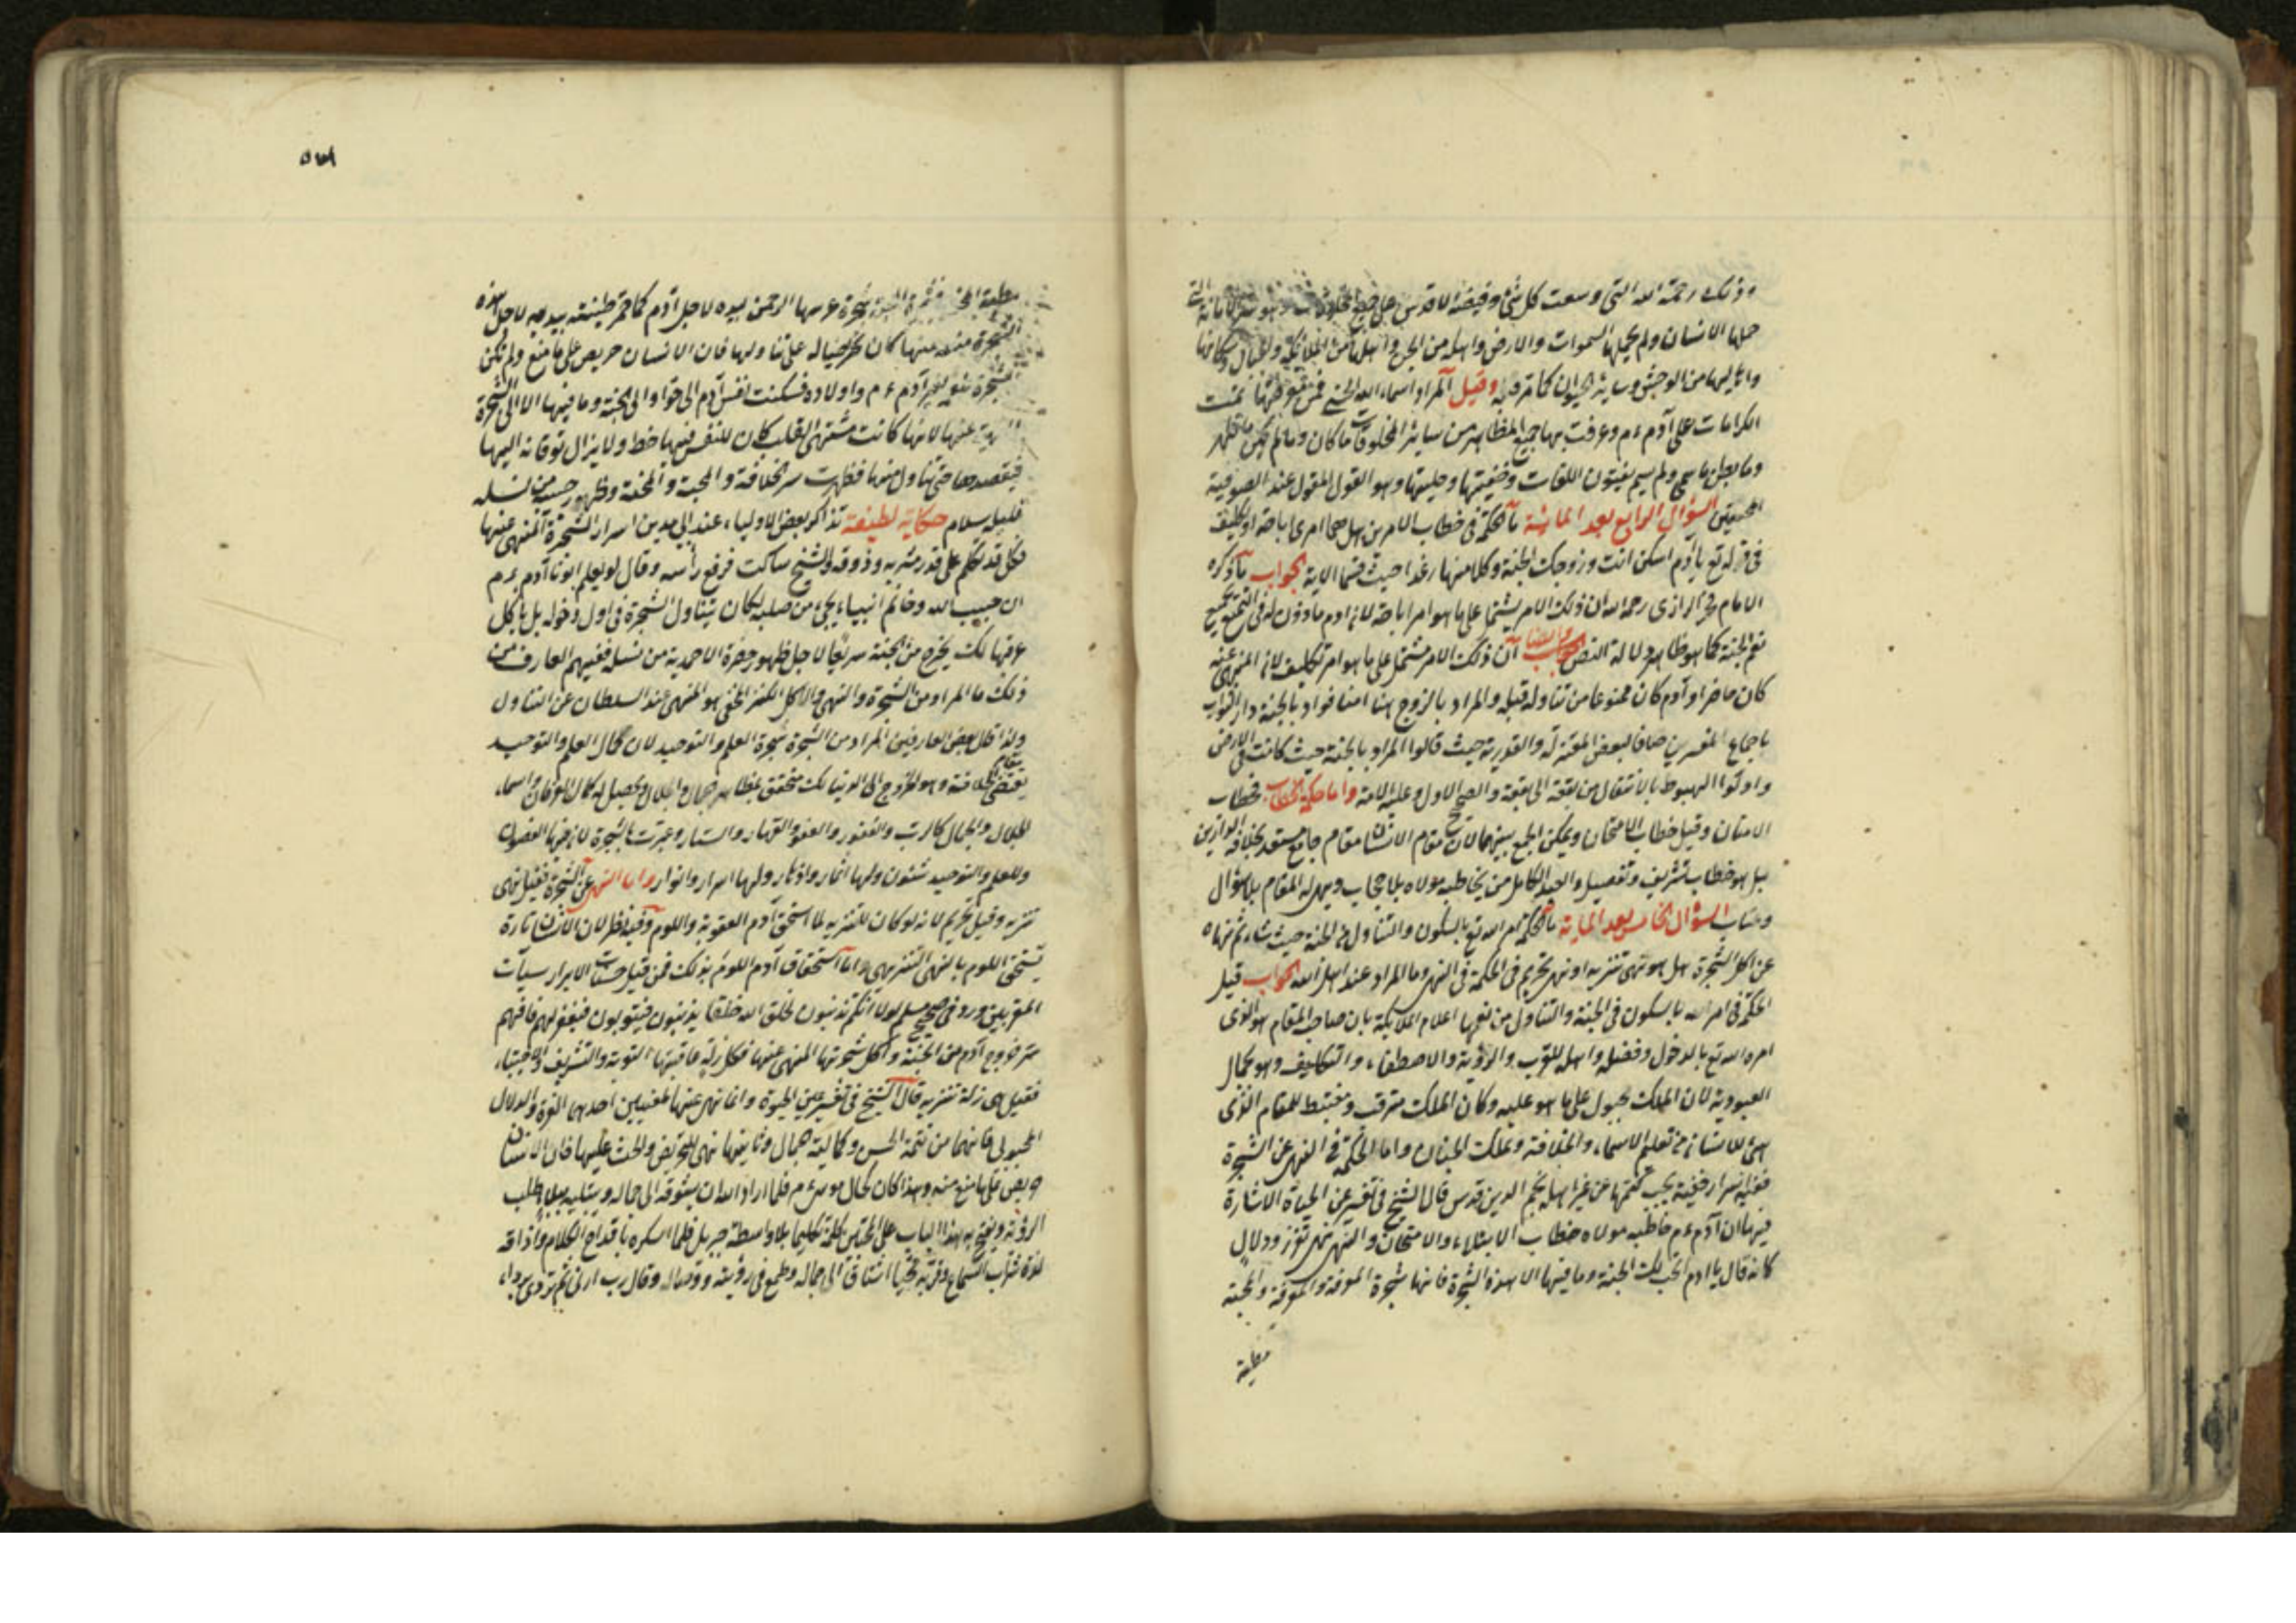 وذلك رحمة الله التي وسعت كل شئ وفيضه الاقدس على جميع وهو سر الامانة التى
حملها الانسان ولم يحملها السموات والارض واهله من الجن واهلها من الملائكة والجبال وسكانها
من الوحش وساير الحيوان كما مر فيه وقيل المراد اسماء الله الحسنى فمن تمت
الكرامات على آدم ءم وعرفت بها جميع المظاهر من سائر المخلوقات ما كان وما لم يكن ما ظهر
وما بطن ولم وهو القول المقبول عند الصوفية
المحققين السؤال الرابع بعد المائة ما الحكمة فى خطاب الامر من اهل هما امرى اباحة او تكليف
فى قوله تع يا آدم اسكن انت وزوجك الجنة وكلا منها رغدا حيث شئتما الاية الجواب ما ذكره
الامام فخر الرازى رحمه الله ان ذلك الامر يشتمل على ما هو امر اباحة لان ادم مأذون له فى التمتع بجميع
نعم الجنة كما هو ظاهر دلالة النص وايضا ان ذلك الامر مشتمل على ما هو امر تكليف لان المنهى عنه
كان حاضرا وآدم كان ممنوعا من تناوله قبله والمراد بالزوج هنا امنا حواء والمراد بالجنة دار الثواب
باجماع المفسرين خلافا لبعض المعتزلة والقدرية حيث قالوا المراد بالجنة حيث كانت فى الارض
واولوا الهبوط بالانتقال من بقعة الى بقعة والصحيح الاول وعليه الامة واما حكمة الخطاب فخطاب
الامتنان وقيل خطاب الامتحان ويمكن الجمع بينهما لان مقام الانسان مقام جامع مستعد بخلافة الدارين
بل هو خطاب تشريف وتفضيل والعبد الكامل من يخاطبه مولاه بلا حجاب ويهئ له المقام بلا سؤال
وعتاب السؤال الخامس بعد المائة ما الحكمة امر الله تع بالسكون والتناول فى الجنة حيث شاء ثم نهاه
عن اكل الشجرة هل هو نهى تنزيه او نهى تحريم فى الحكمة فى النهى وما المراد عند اهل الله الجواب قيل
الحكمة فى امر الله بالسكون فى الجنة والتناول من نعمها اعلام الملائكة بان صاحب المقام هو الذى
امره الله تع بالدخول وفضله واهله للقرب والرؤية والاصطفاء والتكليف وهو كمال
العبودية لان الملك مجبول على ما هو عليه وكان الملك مترقب ومغتبط للمقام الذى
هئ للانسان من تعليم الاسماء والخلافة وملك الجنان واما الحكمة فى النهى عن الشجرة
ففيه اسرار خفية يجب كتمها عن غير اهله نجم الدين قدس قال الشيخ فى تفسير عين الحياة الاشارة
فيها ان آدم ءم خاطبه مولاه خطاب الابتلاء والامتحان والنهى نهى تعزز ودلال
كانه قال يا ادم لك الجنة وما فيها الا هذه الشجرة فانها شجرة المعرفة والمحبة
مطية
شجرة غرسها الرحمن بيده لاجل آدم كما خمر طينته بيديه لاجل هذه
الشجرة منها كان على تناولها فان الانسان حريص على ما منع ولم تكن
الشجرة لغير آدم ءم واولاده فسكنت نفس آدم الى حواء والى الجنة وما فيها الا الى الشجرة
عنها لانها كانت مشتهى القلب كان للنفس فيها حظ ولا يزال توقانه اليها
فيقصدها حتى تناول منها فظهر سر الخلافة والمحبة والمحنة وظهور حسنه من نسله
حكاية لطيفة تذاكر بعض الاولياء عند ابى مدين اسرار الشجرة المنهى عنها
فكل قد تكلم على قدر مشربه وذوقه والشيخ ساكت فرفع رأسه وقال لو يعلم ابونا آدم ءم
ان حبيب الله وخاتم انبيائه يجئ من صلبه لكان يتناول الشجرة فى اول دخوله بل يأكل
عرقها لكى يخرج من الجنة سريعا لاجل ظهور حضرة الاحمدية من نسله ففهم العارف من
ذلك ما المراد من الشجرة والنهى والاكل الكنز الخفى هو المنهى عند السلطان عن التناول
ولذا قال بعض العارفين المراد من الشجرة شجرة العلم والتوحيد لان كمال العلم والتوحيد
يقتضى مقام الخلافة وهو الخروج الى الدنيا لكى متحقق بمظاهر جمال والجلال وتحصيل له كمال العرفان واسماء
الجلال والجمال كالرب والغفور والعفو والقهار والستار وعبرت بالشجرة لان فيها الغصون
وللعلم والتوحيد شئون ولها اثمار واذكار ولها اسرار وانوار واما النهى عن الشجرة فقيل نهى
تنزيه وقيل تحريم لانه لو كان للتنزيه لما استحق آدم العقوبة واللوم وفيه نظر لان الانسان تارة
يستحق اللوم بالنهى التنزيهى واما استحقاق آدم اللوم بذلك فمن قبيل حسنات الابرار سيآت
المقربين وورد فى صحيح مسلم لولا انكم تذنبون لخلق الله خلقا يذنبون فيتوبون فيغفر لهم فافهم
سر خروج آدم من الجنة واكل شجرتها المنهى عنها فكل زلة عاقبتها التوبة والتشريف والاجتباء
فقيل هى زلة تنزيه قال الشيخ فى تفسير عين الحيوة وانما نهى عنها لمعنيين احدهما العزة والدلال
المحبوبى فانهما من تتمة الحسن وكمالية الجمال وثانيها نهى التحريض والحث عليها فان الانسان
حريص على ما منع منه وهذا كان كحال موسى ءم فلما اراد الله ان يشوقه الى جماله ويبتليه ببلاء طلب
الرؤية ويفتح به هذا الباب على المحبين كلمه تكليما بلا واسطة جبريل فلما اسكره باقداح الكلام واذاقه
لذة شراب السماع وقربه نجيا اشتاق الى جماله وطمع فى رؤيته ووصاله وقال رب ارنى ثم تردى برداء